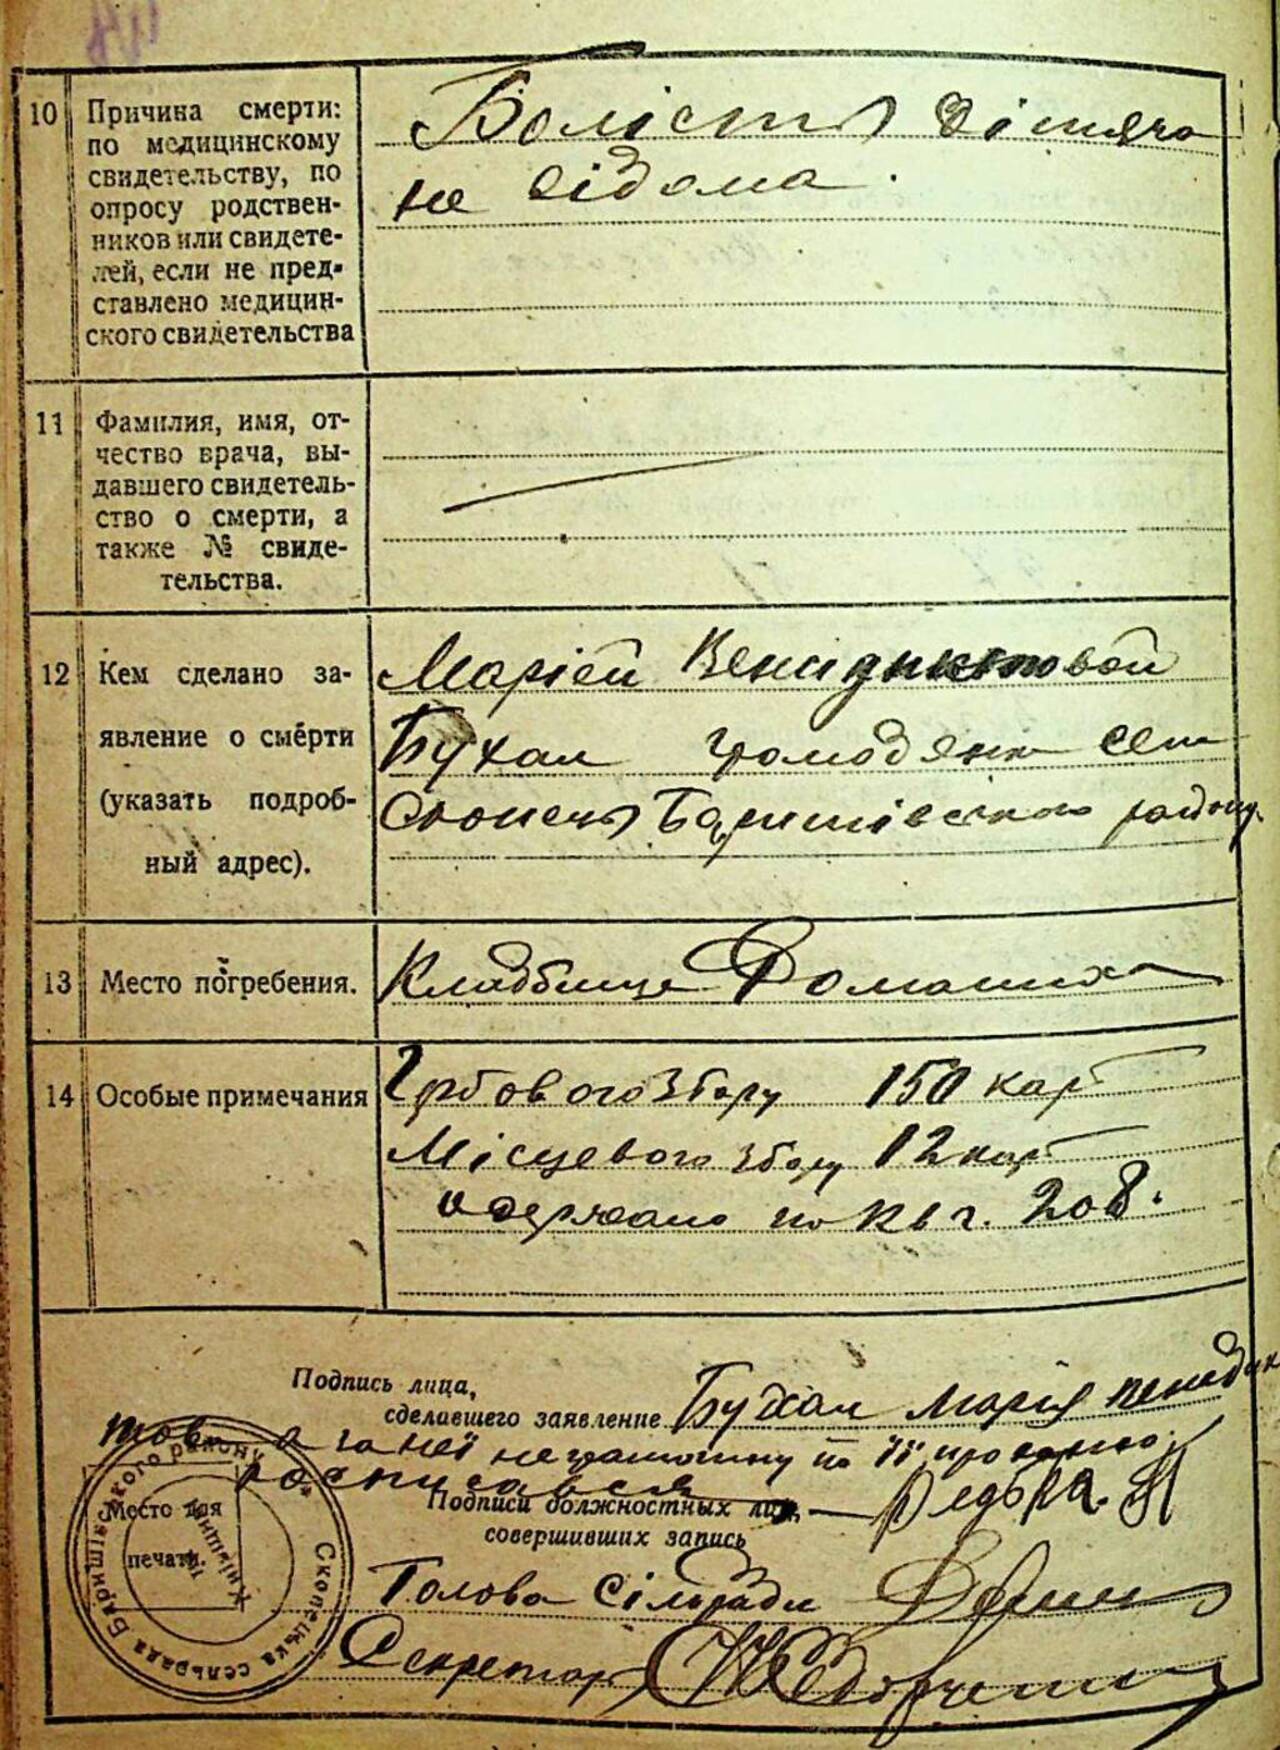 10 Причина смерти:
по медицинскому
свидетельству, по
опросу родствен-
ников или свидете-
лей, если не пред-
ставлено медицин-
ского свидетельства
Болість дітяча
не відома.
11 Фамилия, имя, от-
чество врача, вы-
давшего свидетель-
ство о смерти, а
также № свиде-
тельства.
12 Кем сделано за-
явление о смерти
(указать подроб-
ный адрес).
Марієй
Бухал громодянка села
Скопець Баришівського району
13 Место погребения.
Кладбище Домашка
14 Особые примечания
Гербового збору 150 карб
Місцевого збору 12 карб
одержано по кв г. 208.
Подпись лица,
сделавшего заявление Бухал Марія
а за неї неграмотну по її проханню
росписався
Место для
печати.
Подписи должностных лиц, — Редька
совершивших запись
Голова сільради
Секретарь
Скопецька сельрада Баришівського району
Київщина